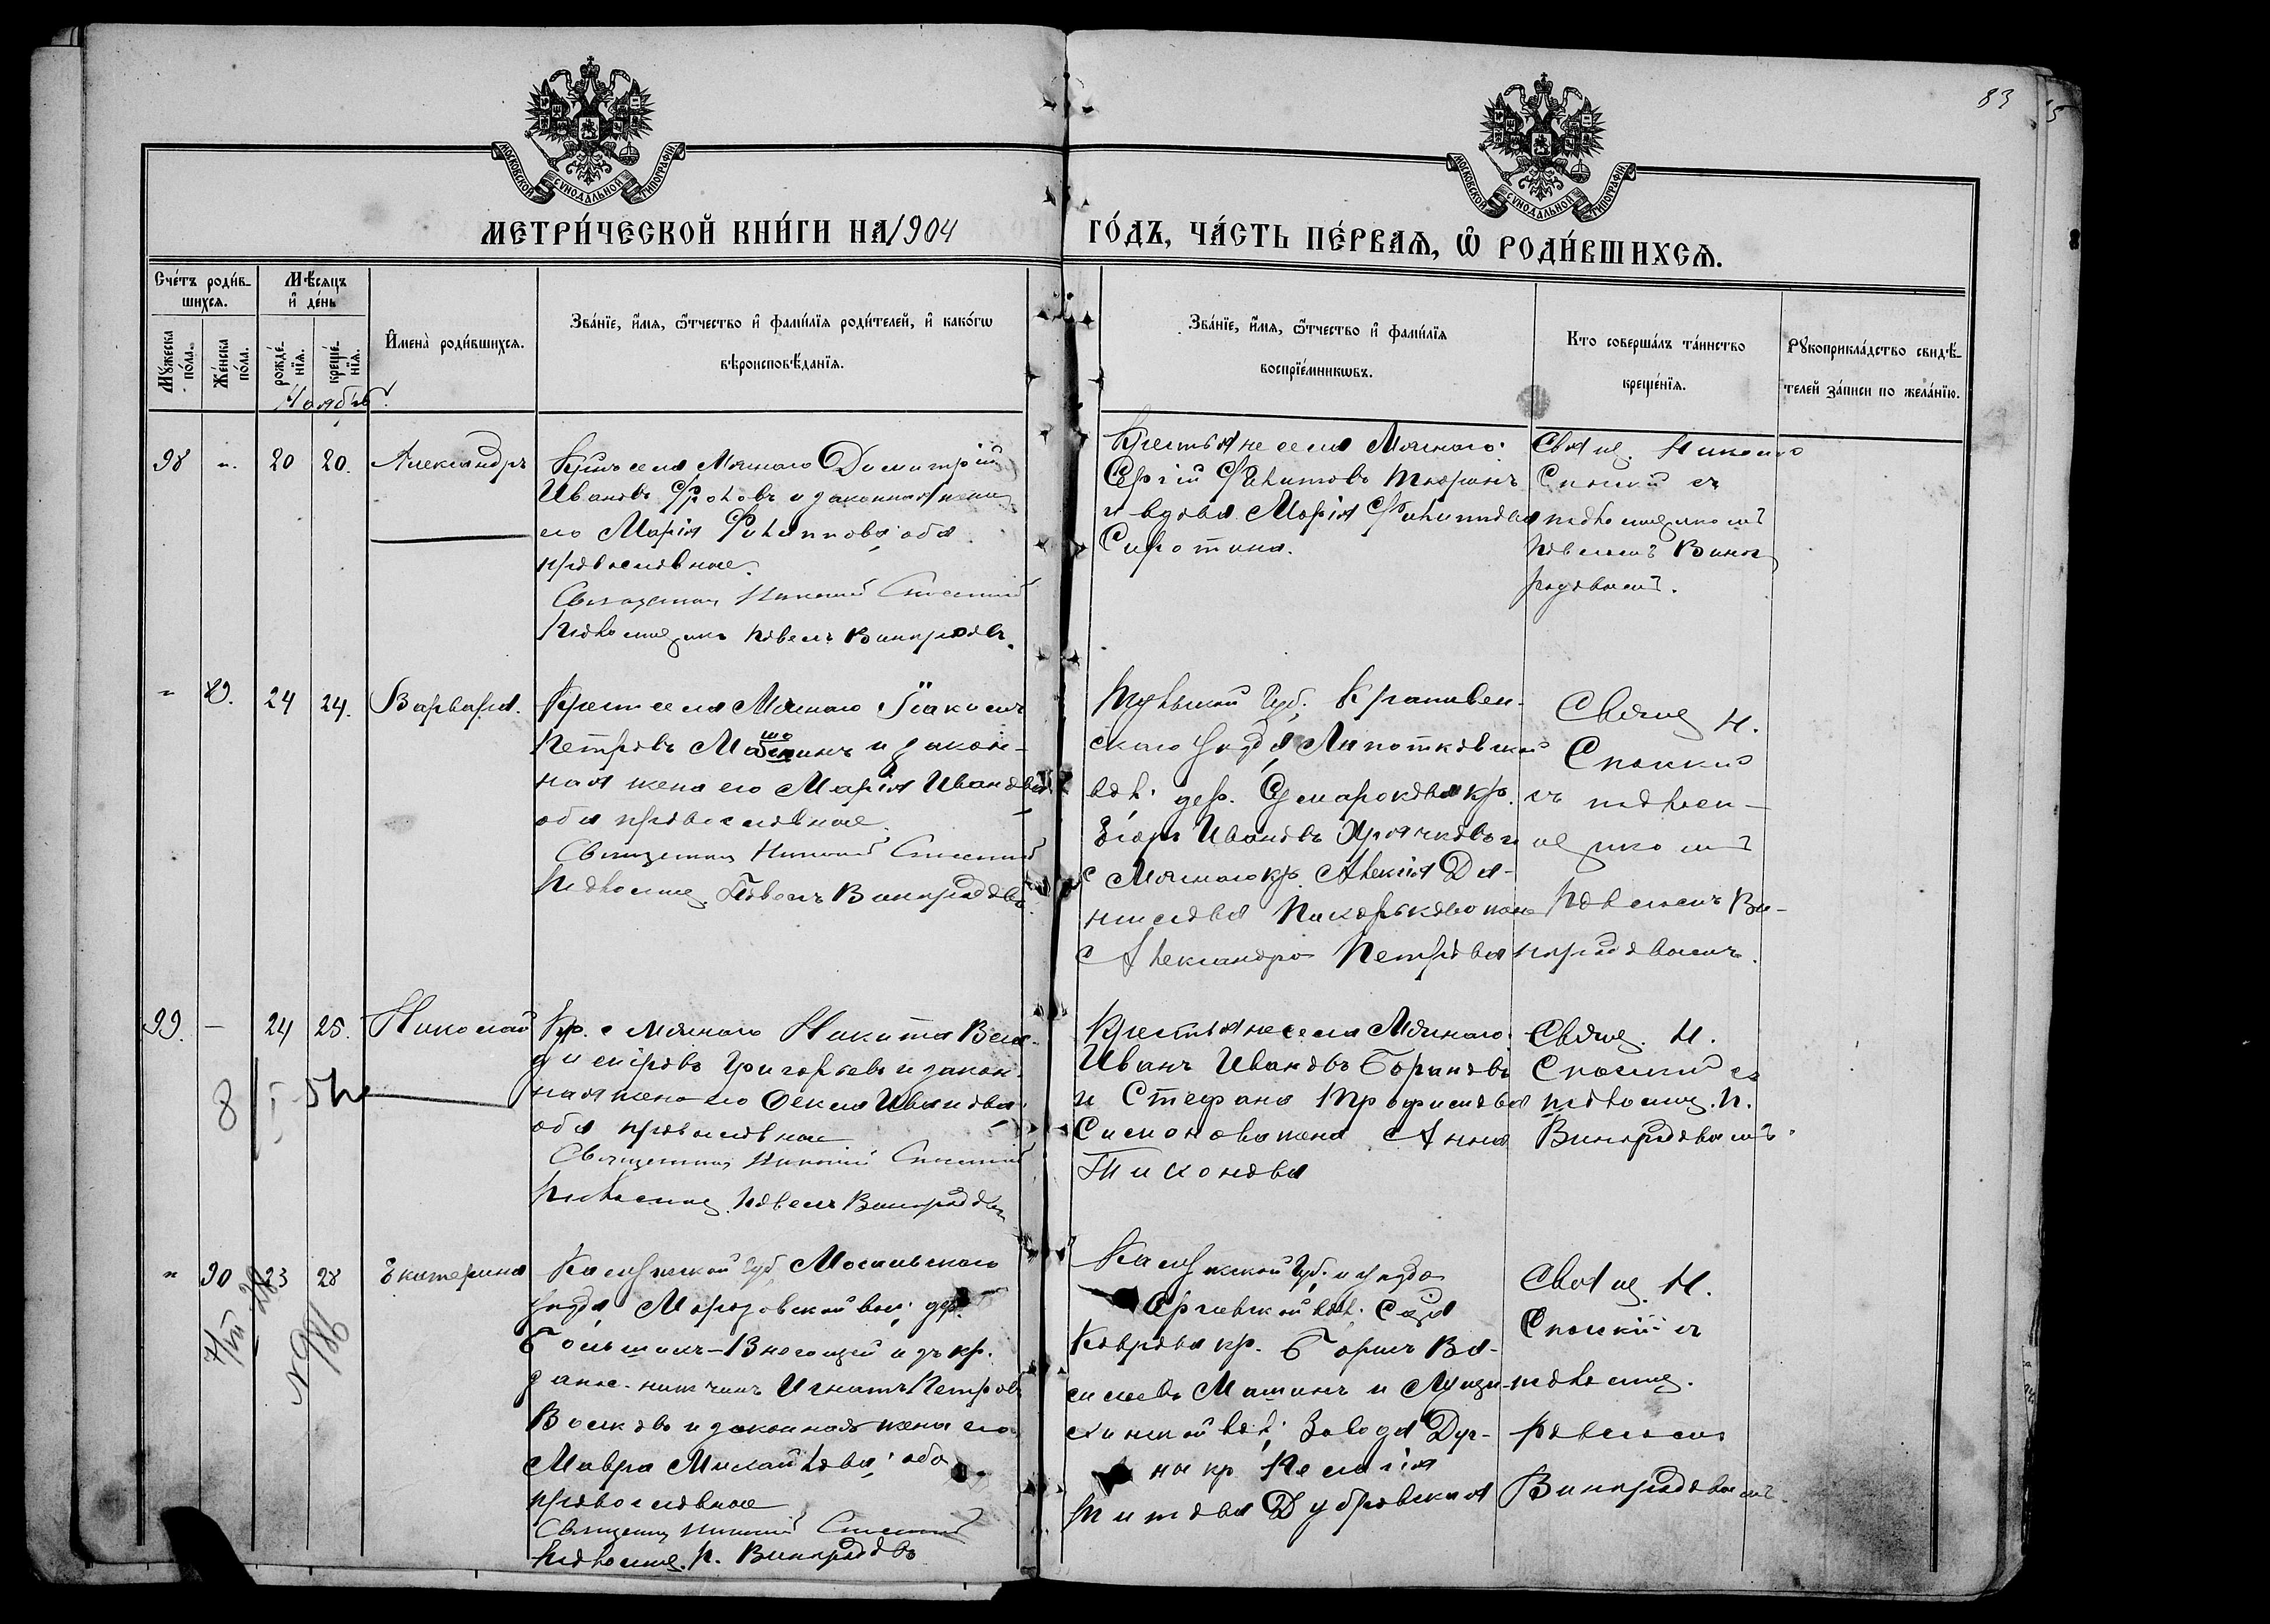 83
МОСКОВСКОЙ СѴНОДАЛЬНОЙ ТИПОГРАФІИ
МОСКОВСКОЙ СѴНОДАЛЬНОЙ ТИПОГРАФІИ
МЕТРИ́ЧЕСКОЙ КНИ́ГИ НА 1904
ГО́ДЪ, ЧА́СТЬ ПЕ́РВАѦ, Ѡ҆ РОДИ́ВШИХСѦ.
Сче́тъ роди́в-
шихсѧ.
Мѣ́сѧцъ
и҆ де́нь
Мꙋ́жеска
по́ла.
Же́нска
по́ла.
рожде́-
нїѧ.
креще́-
нїѧ.
И҆мена̀ роди́вшихсѧ.
Зва́нїе, и҆́мѧ, ѻ҆́тчество и҆ фамѵ́лїѧ роди́телей, и҆ како́гѡ
вѣроисповѣ́данїѧ.
Зва́нїе, и҆́мѧ, ѻ҆́тчество и҆ фамѵ́лїѧ
воспрїе́мникѡвъ.
Кто соверша́лъ та́инство
креще́нїѧ.
Рꙋкоприкла́дство свидѣ́-
телей за́писи по жела́нїю.
Ноябрь.
98 „ 20 20. Александръ
Кр. села Мячкаго Димитрій
Ивановъ Фроловъ и законная жена
его Марія Филиппова; оба
православные.
Священникъ Николай Спасскій
Псаломщикъ Павелъ Виноградовъ.
Крестьяне села Мячкаго:
Сергій Филиповъ Тюринъ
и вдова Марія Филиппова
Сиротина.
Свящ. Николай
Спасскій съ
псаломщикомъ
Павломъ Виног
радовымъ.
„ 89. 24 24. Варвара.
Крест. села Мячкаго Іакимъ
Петровъ и закон-
ная жена его Марія Иванова
оба православные.
Священникъ Николай Спасскій
Псаломщ. Павелъ Виноградовъ.
Тульской губ. Крапивен-
скаго уѣзда, Лапотковской
вол. дер. Сумарокова кр.
Егоръ Ивановъ и
с. Мячкаго кр. Алексія Да-
нилова жена
Александра Петрова
Свящ. Н.
Спасскій
съ псалом-
щикомъ
Павломъ Ви-
ноградовымъ.
99. — 24 25. Николай
Кр. с. Мячкаго Никита
Григорьевъ и закон-
ная жена его Ѳекла Иванова
оба православные
Священникъ Николай Спасскій
Псаломщ. Павелъ Виноградовъ
Крестьяне села Мячкаго:
Иванъ Ивановъ Барановъ
и Стефана Трофимова
Симонова жена Анна
Тихонова
Свящ. Н.
Спасскій съ
псаломщ. П.
Виноградовымъ.
„ 90 23 28 Екатерина
Калужской губ. Мосальскаго
уѣзда, Морозовской вол. дер.
изъ кр.
Игнатъ Петровъ
Волковъ и законная жена его
Мавра Михайлова; оба
православные
Священникъ Николай Спасскій
Псаломщ. П. Виноградовъ
Калужской губ. и уѣзда
Сергіевской вол. Села
Коврова кр. Борисъ Ва-
сильевъ Машинъ и
вол. Завода Дуг-
на кр. Пелагія
Титова Дубровская
Свящ. Н.
Спасскій съ
псаломщ.
Павломъ
Виноградовымъ.